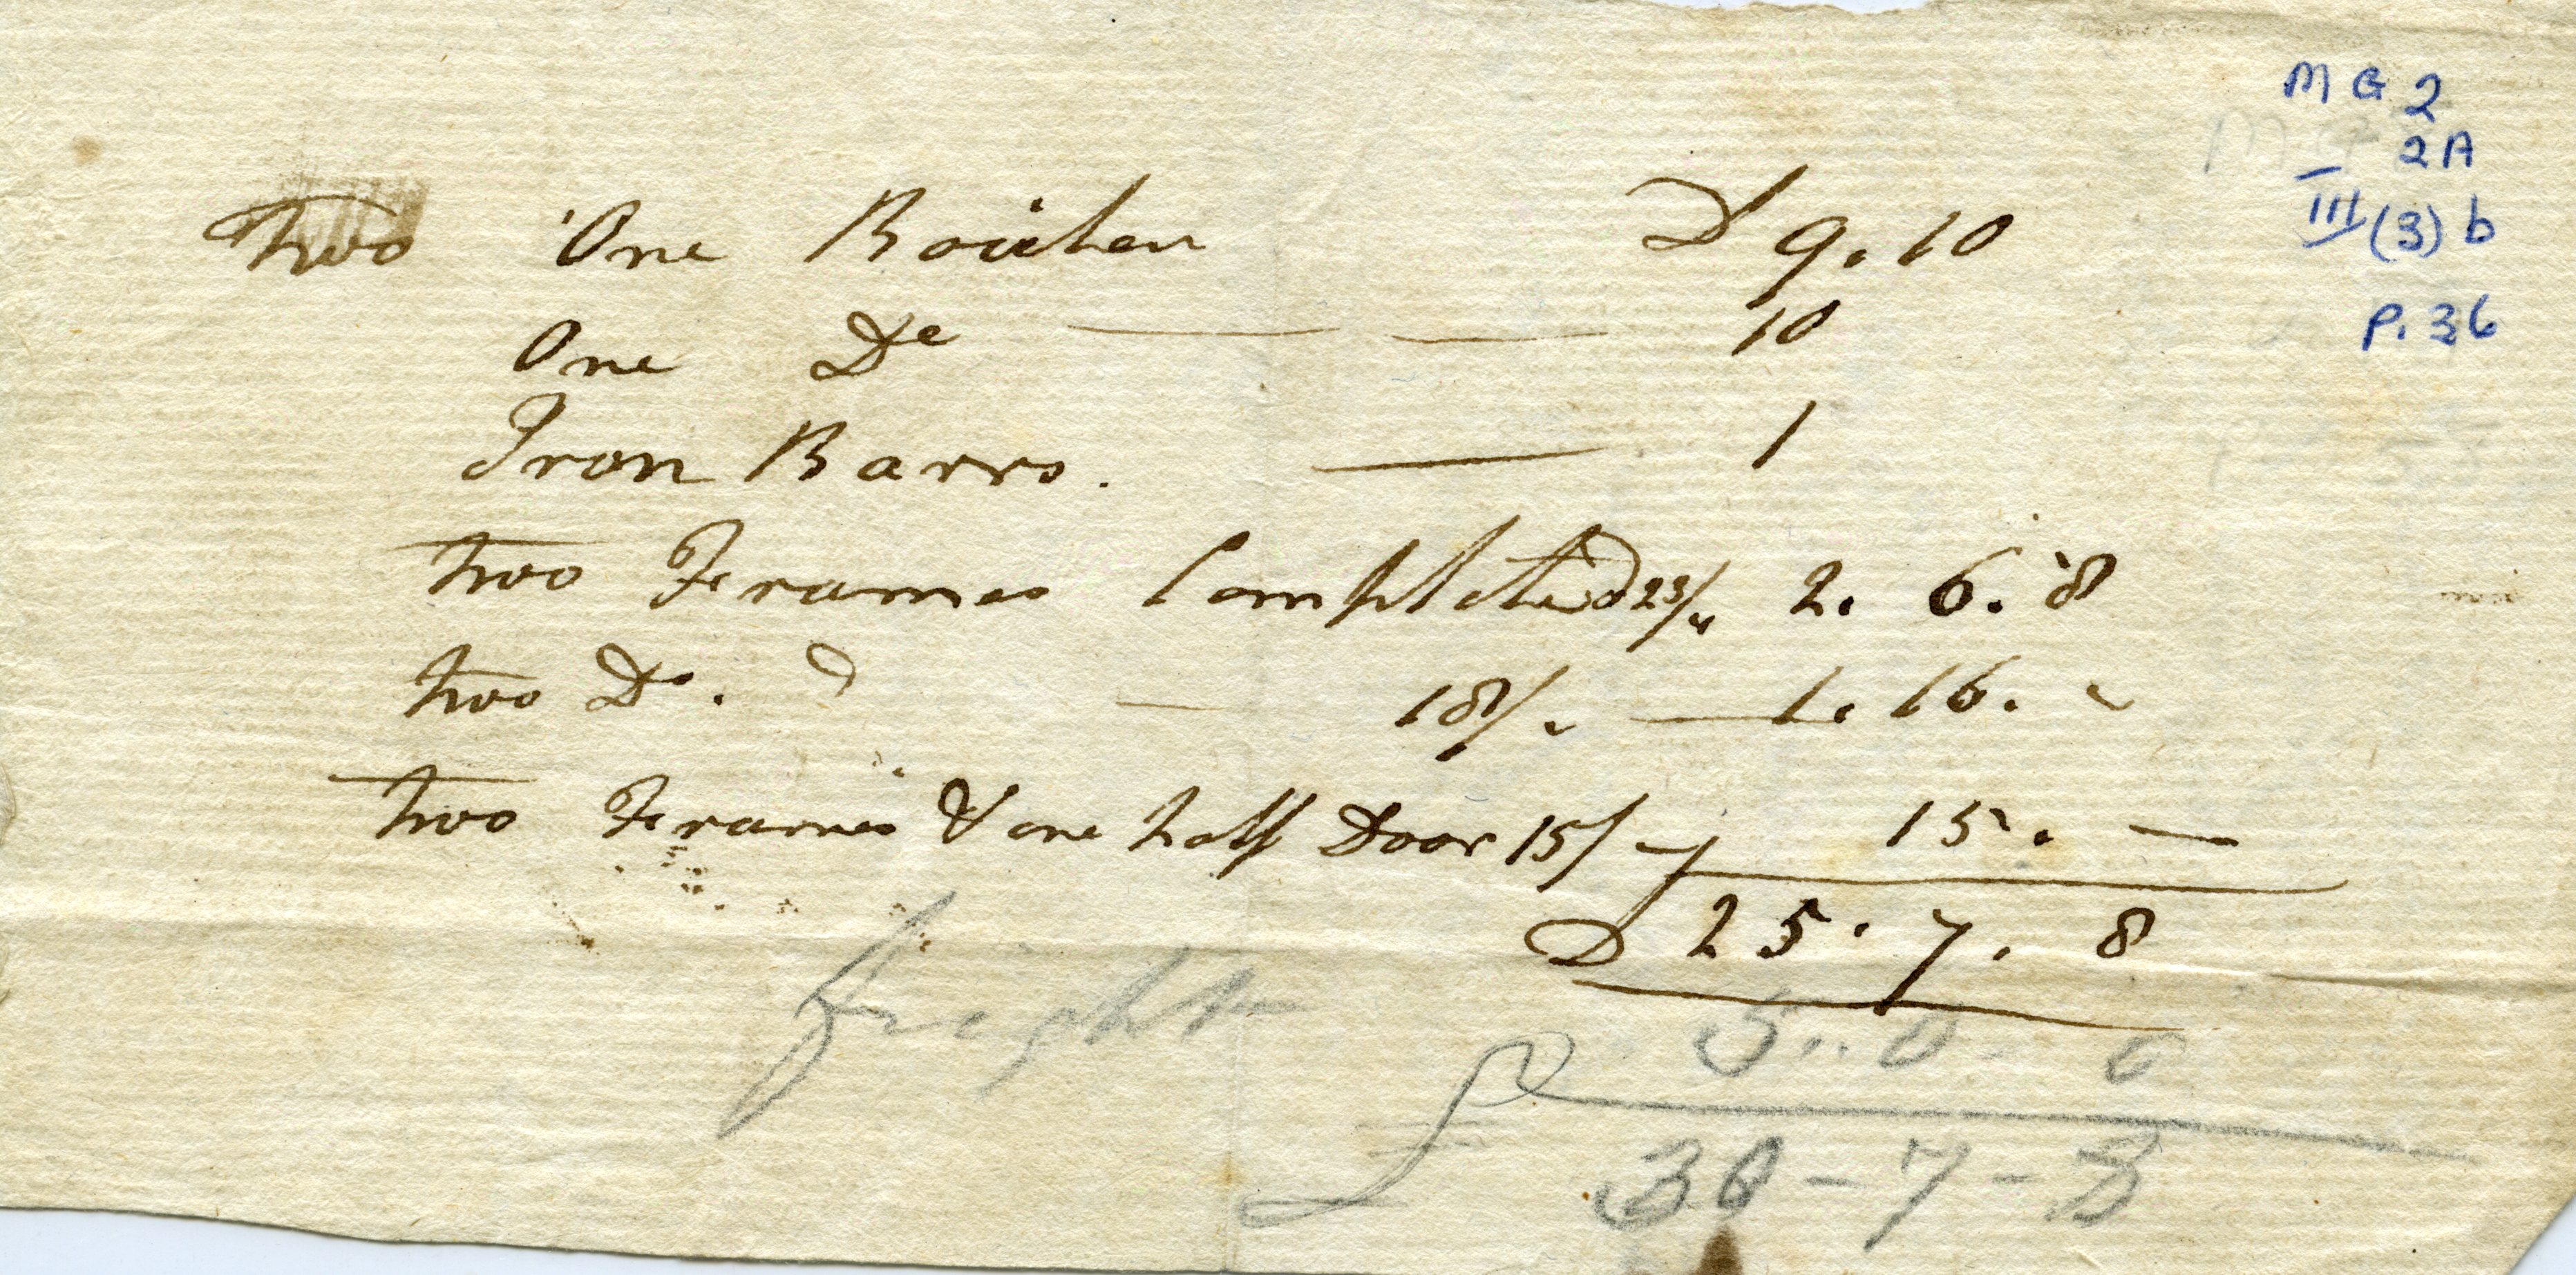 MG 2
2A
I
III (3) b
P. 36
Two One Boiiler £ 9. 10
One De 10
Iron Barrs. 1
Two Frames Completed 23/4 2. 6. 8
Two Do. 18/. 1. 16. -
Two Frames & one half Door 15/ - 15. -
£ 25. 7. 8
freght 5.. 0 - 0
£ 30 - 7 - 8